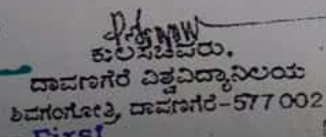 ಕುಲಸಚಿವರು,
ದಾವಣಗೆರೆ ವಿಶ್ವವಿದ್ಯಾನಿಲಯ
ಶಿವಗಂಗೋತ್ರಿ, ದಾವಣಗೆರೆ-577 002
First